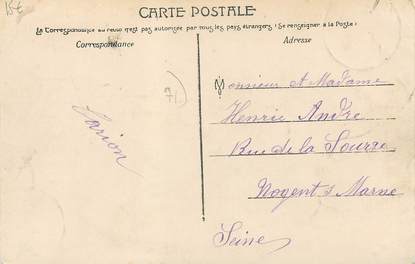 15€
CARTE POSTALE
La Correspondance au recto n'est pas autorisée par tous les pays étrangers (Se renseigner à la Poste)
Correspondance
Adresse
77
Larion
Monsieur et Madame
Henrie André
Rue de la Source
Nogent s Marne
Seine